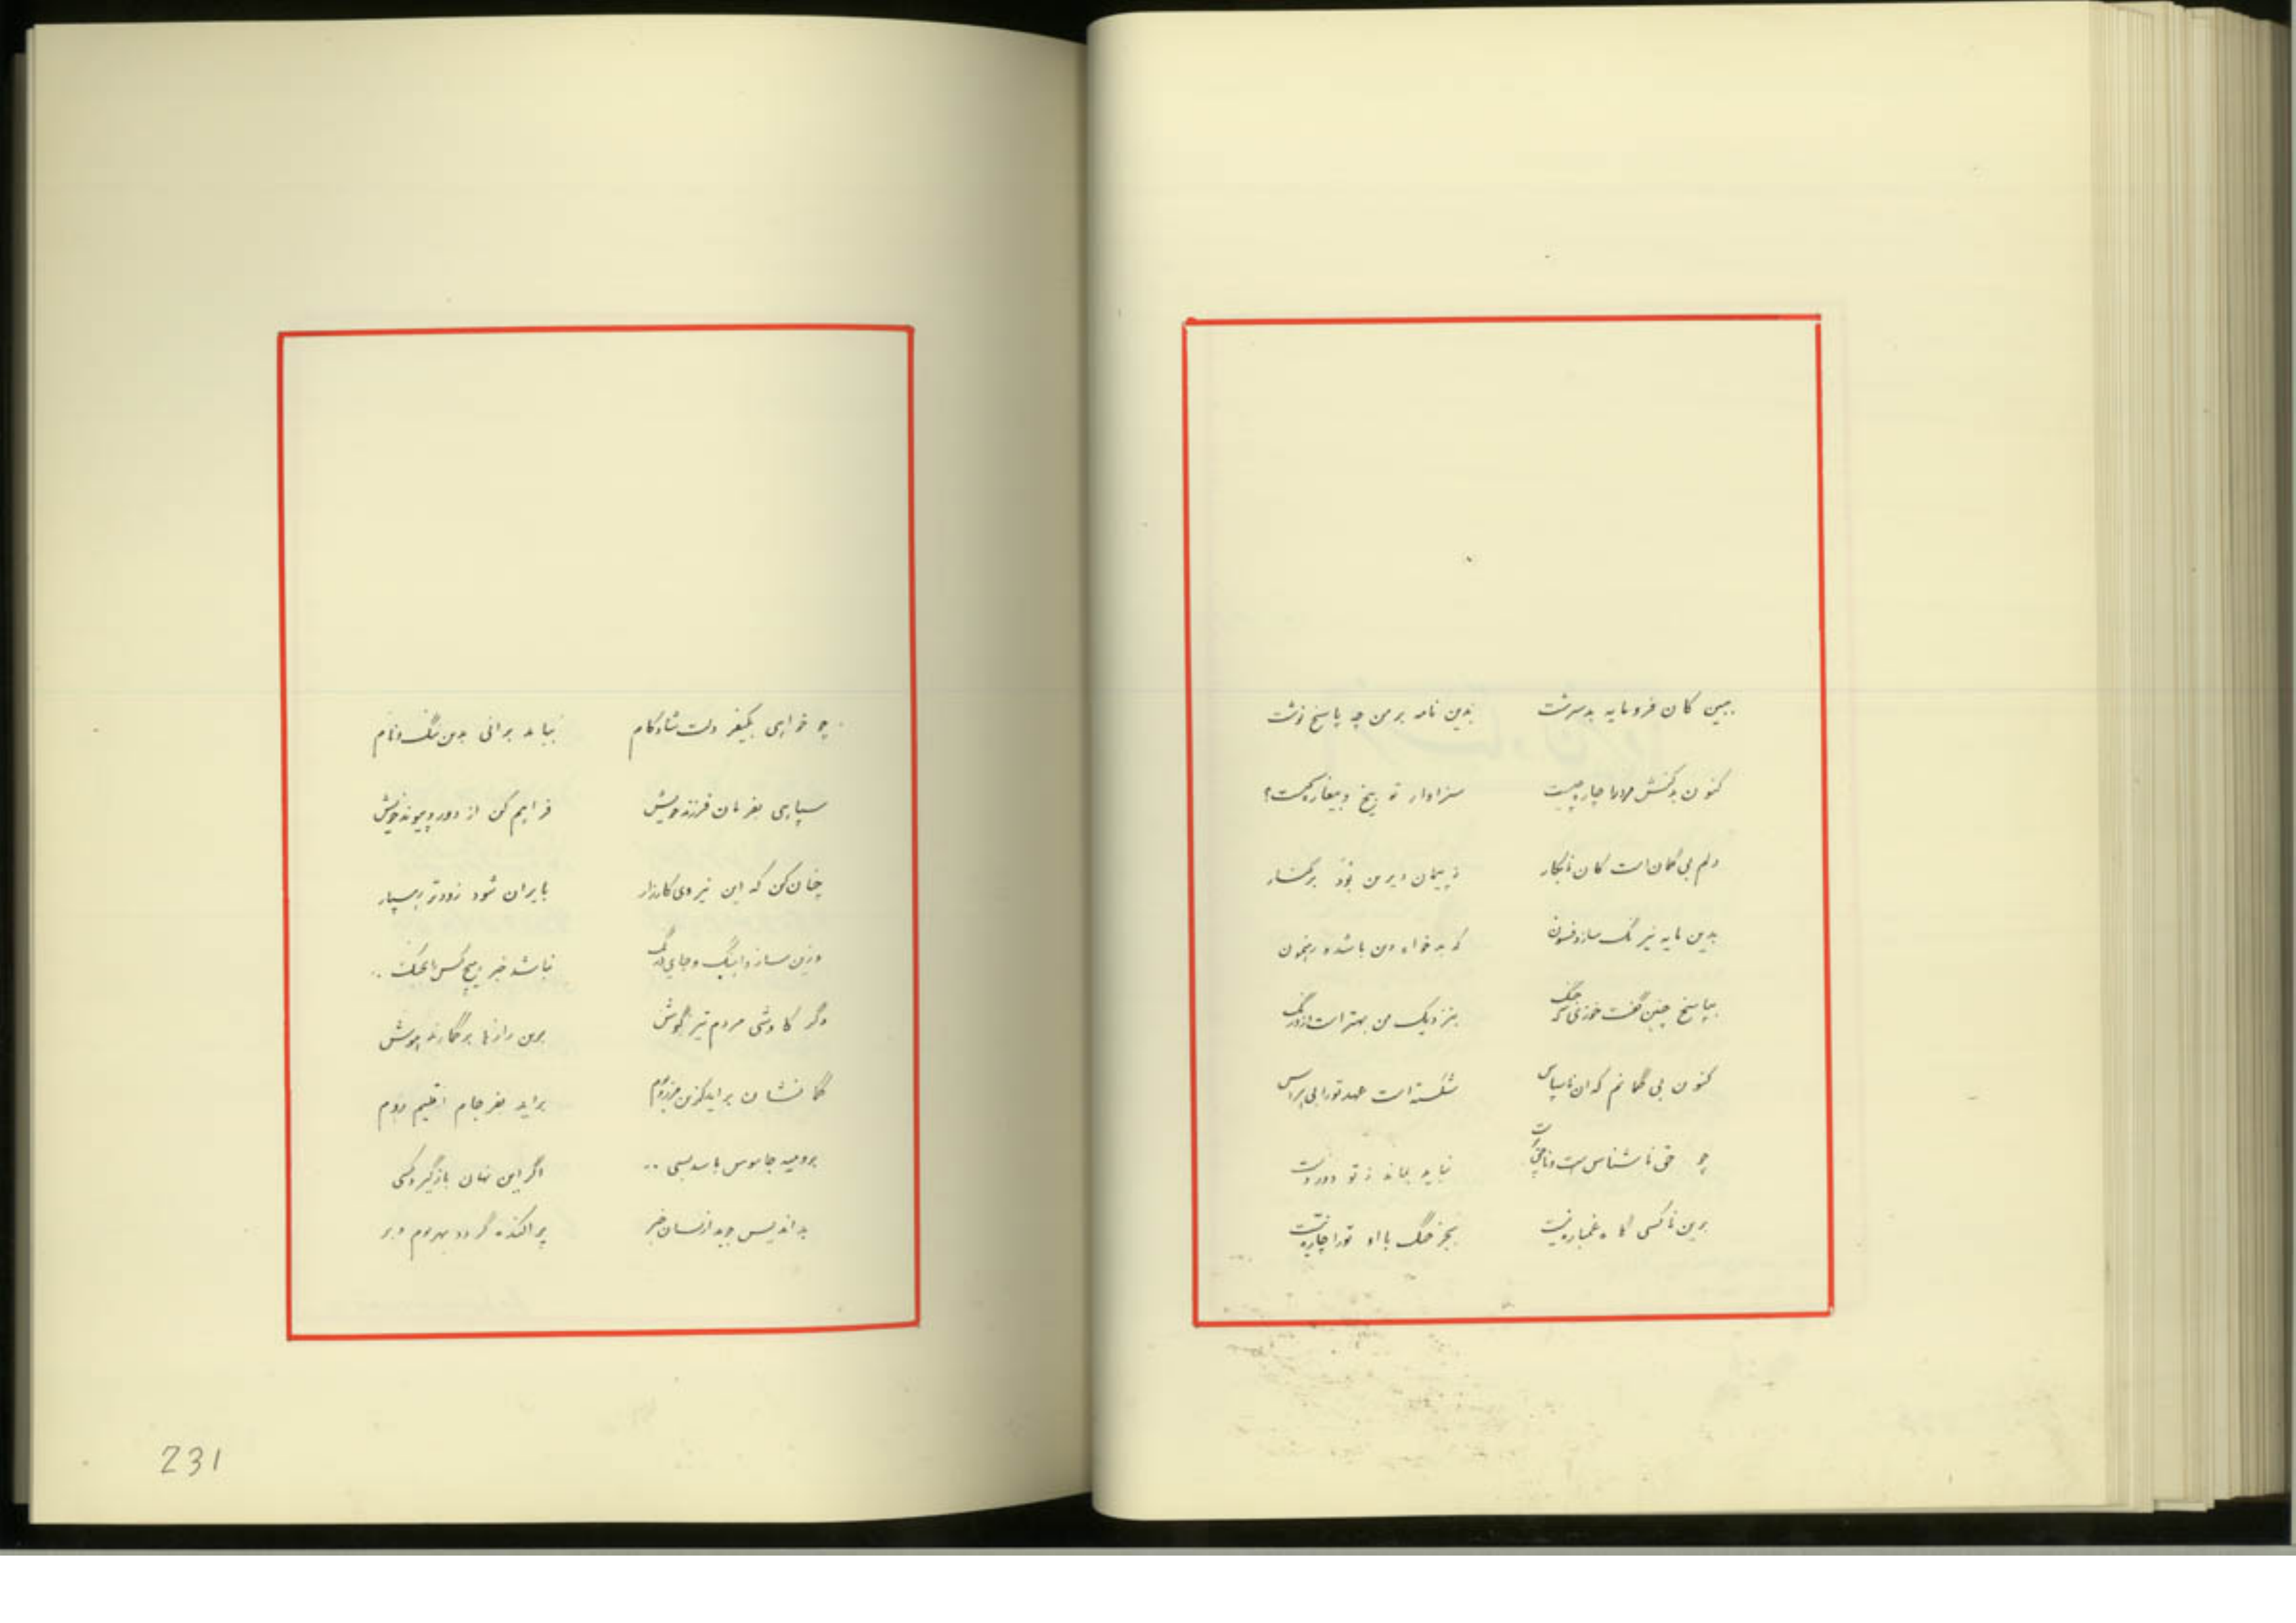 ببین کان فرومایه بدسرشت بدین نامه بر من چه پاسخ نوشت
کنون بدکنش مرد را چاره چیست سزاوار توبیخ و بیغاره کیست؟
دلم بی گمان است کان نابکار ز پیمان دیرین بود برکنار
بدین مایه نیرنگ سازد فسون که بدخواه من باشد و رهنمون
بپاسخ چنین گفت جنگ بنزدیک من بهتر است از درنگ
کنون بی گمانم که آن ناسپاس شکسته است عهد تو را بی هراس
چو حق ناشناس ست و نباید بماند ز تو دور دست
برین ناکسی گاه غمباره نیست بجز جنگ با او تو را چاره نیست
چو خواهی بکیفر دلت شادکام نباید برانی بدین ننگ و نام
سپاهی بفرمان فرزند خویش فراهم کن از دور و پیوند خویش
چنان کن که این نیروی کارزار بایران شود زودتر رهسپار
وزین ساز و آهنگ و جای درنگ نباشد خبر هیچ کس را بجنگ ..
دگر کاوشی مردم تیزگوش برین رازها برگمارند هوش
گمانشان برآید کزین مرز و بوم برآید بفرجام اقلیم روم
برومیه جاسوس باشد بسی .. اگر این نهان بازگیرد کسی
بداندیس چون زانسان خبر پراکنده گردد بهر بوم و بر
231